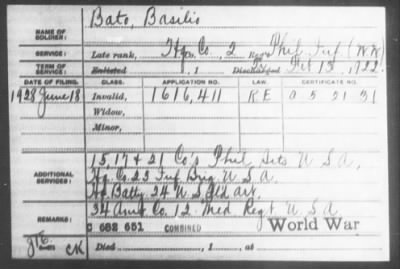 Bato, Basilio
NAME OF SOLDIER:
SERVICE: Late rank, Hq. Co. 2 Reg't Phil Inf (WW)
TERM OF SERVICE: Enlisted , 1 Discharged Oct 13, 1922.
DATE OF FILING. CLASS. APPLICATION NO. LAW. CERTIFICATE NO.
1928 June 18 Invalid, 1616,411 R E A 5 21 31
Widow,
Minor,
15, 17 & 21 Co's Phil Scts U S A,
ADDITIONAL SERVICES: Hq Co. 23 Inf Brig. U S A
Hq Batty. 24 U S Fld art.
REMARKS: 34 Amb Co. 12 Med Regt. U S A
C 682 651 COMBINED World War
CK Died, , 1 , at